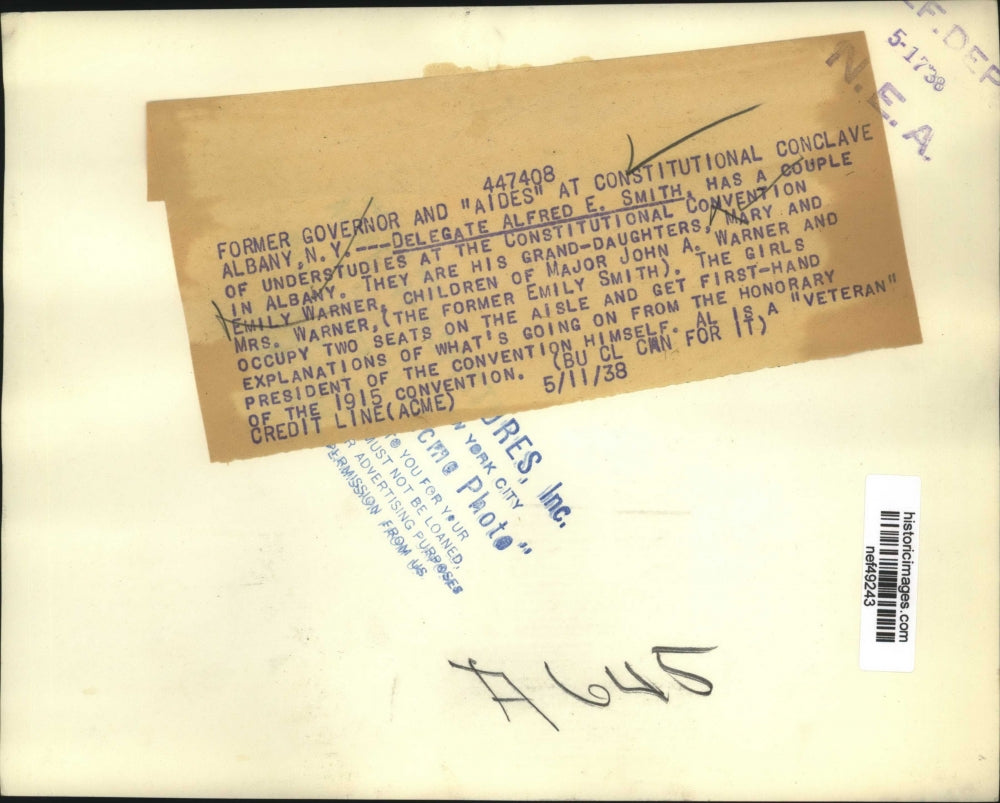 F. DEP
5-17'38
N. E. A.
447408
FORMER GOVERNOR AND "AIDES" AT CONSTITUTIONAL CONCLAVE
ALBANY, N. Y.---DELEGATE ALFRED E. SMITH, HAS A COUPLE
OF UNDERSTUDIES AT THE CONSTITUTIONAL CONVENTION
IN ALBANY. THEY ARE HIS GRAND-DAUGHTERS, MARY AND
EMILY WARNER, CHILDREN OF MAJOR JOHN A. WARNER AND
MRS. WARNER, (THE FORMER EMILY SMITH). THE GIRLS
OCCUPY TWO SEATS ON THE AISLE AND GET FIRST-HAND
EXPLANATIONS OF WHAT'S GOING ON FROM THE HONORARY
PRESIDENT OF THE CONVENTION HIMSELF. AL IS A "VETERAN"
OF THE 1915 CONVENTION. (BU CL CAN FOR IT)
CREDIT LINE(ACME) 5/11/38
URES, Inc.
YORK CITY
cme Photo"
TO YOU FOR YOUR
MUST NOT BE LOANED,
R ADVERTISING PURPOSES
PERMISSION FROM US
A645
historicimages.com
nef49243